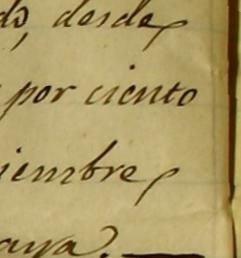 do, desde
por ciento
iembre
aya.